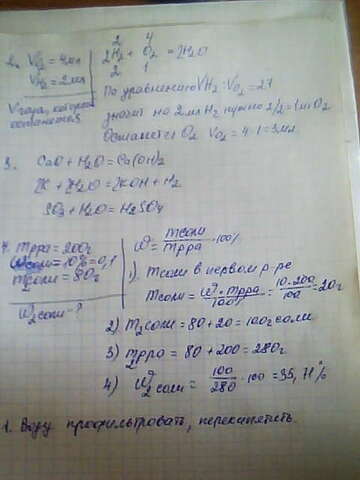 2. V O₂ = 4мл
V H₂ = 2мл
V газа, который
останется
2 4
2H₂ + O₂ = 2H₂O
2 1
По уравнению VH₂ : VO₂ = 2:1
значит на 2мл H₂ нужно 2/2 = 1мл O₂
Останется O₂ VO₂ = 4-1=3мл
3. CaO + H₂O = Ca(OH)₂
2K + 2H₂O = 2KOH + H₂
SO₃ + H₂O = H₂SO₄
4. mрра = 200г
Wсоли = 10% = 0,1
mсоли = 80г
W₂соли - ?
W = mсоли / mрра · 100%
1) mсоли в первом р-ре
mсоли = W · mрра / 100 = 10·200 / 100 = 20г
2) m₂соли = 80 + 20 = 100г соли
3) m₂рра = 80 + 200 = 280г
4) W₂соли = 100 / 280 · 100 = 35,71%
1. Воду профильтровать, перекипятить.